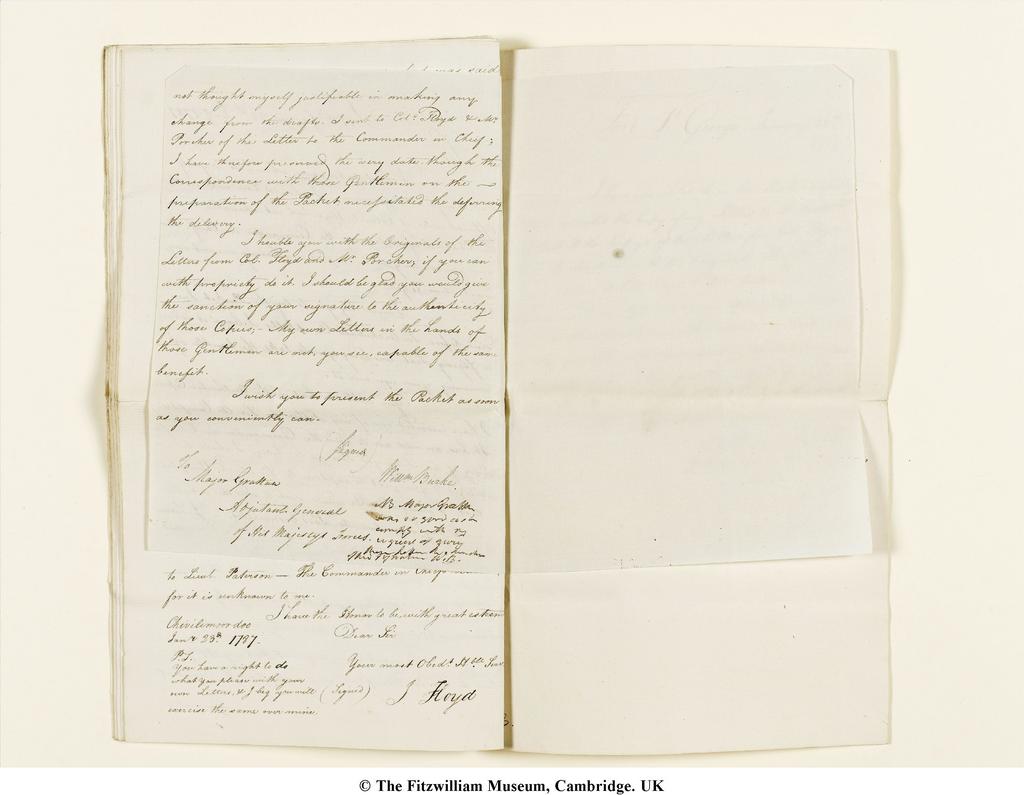 was said
not thought myself justifiable in making any
change from the drafts. I sent to Col: Floyd & Mr
Porcher of the Letter to the Commander in Chief;
I have therefore preserved the very date, though the
Correspondence with those Gentlemen on the —
preparation of the Packet necessitated the deferring
the delivery.
I trouble you with the Originals of the
Letters from Col: Floyd and Mr. Porcher; if you can
with propriety do it. I should be glad you would give
the sanction of your signature to the authenticity
of those Copies; - My own Letters in the hands of
those Gentlemen are not, you see, capable of the same
benefit.
I wish you to present the Packet as soon
as you conveniently can.
(Signed
Willm Burke
To
Major Grattan
Adjutant General
of His Majestys Forces.
NB Major Grattan
was so good as to
comply with my
request
to Lieut. Paterson — The Commander in
for it is unknown to me.
I have the Honor to be, with great esteem
Dear Sir
Your most Obedt. Hble Serv
(Signed) J Floyd
Janr 23d. 1797.
P.S.
You have a right to do
what you please with your
own Letters, & I beg you will
exercise the same over mine.
© The Fitzwilliam Museum, Cambridge. UK